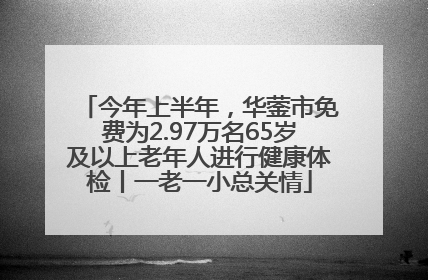 「今年上半年，华蓥市免
费为2.97万名65岁
及以上老年人进行健康体
检丨一老一小总关情」